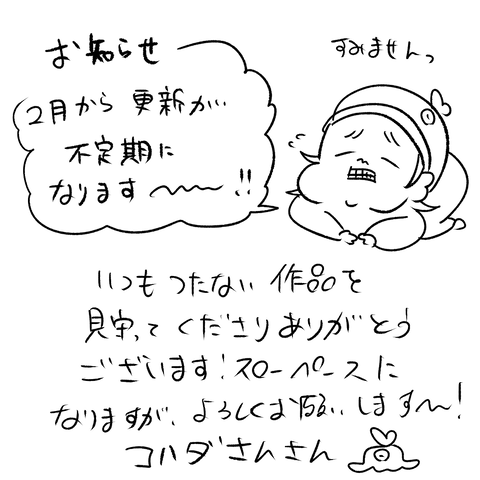 お知らせ
すみませんっ
2月から 更新が…
不定期に
なります〜〜!!
いつも つたない 作品を
見守って くださりありがとう
ございます!スローペースに
なりますが、よろしくお願いします〜!
コハダさんさん